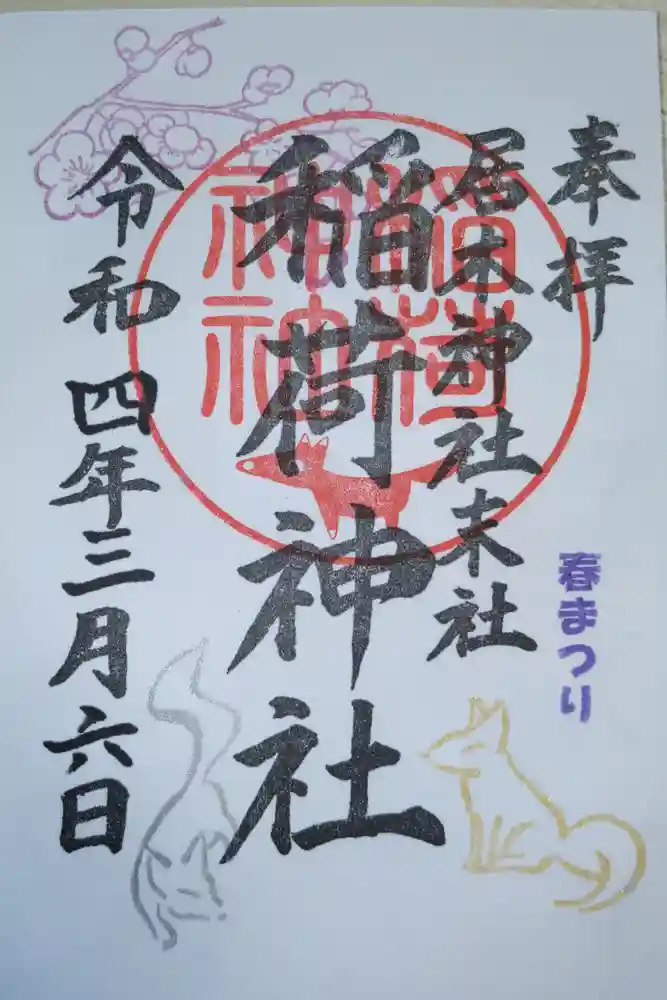 奉拝
居木神社末社
稲荷神社
令和四年三月六日
春まつり
稲荷
神神